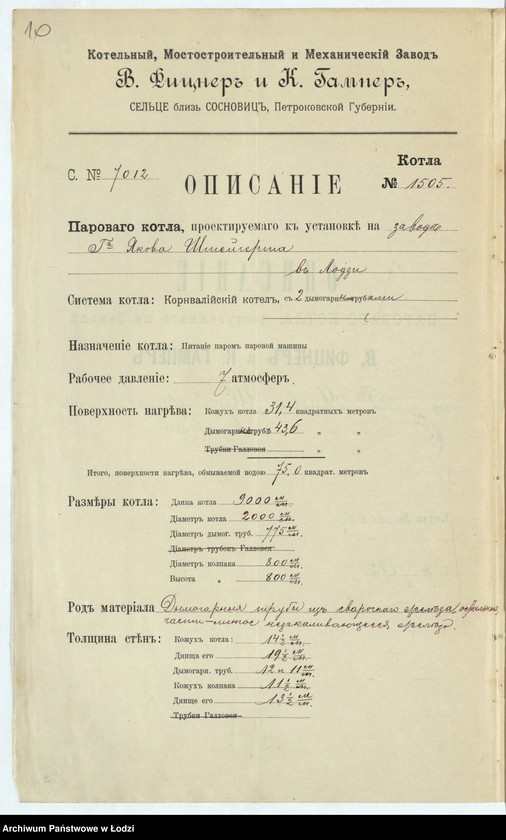 10
Котельный, Мостостроительный и Механическій Заводъ
В. Фицнеръ и К. Гамперъ,
СЕЛЬЦЕ близь СОСНОВИЦЪ, Петроковской Губерніи.
С. № 7012
Котла
№ 1505.
ОПИСАНІЕ
Пароваго котла, проектируемаго къ установкѣ на заводѣ
Гна Якова Штейгерта
въ Лодзи
Система котла: Корнвалійскій котелъ, съ 2 дымогарн. трубами
Назначеніе котла: Питаніе паромъ паровой машины
Рабочее давленіе: 7 атмосферъ.
Поверхность нагрѣва: Кожухъ котла 31,4 квадратныхъ метровъ
Дымогарн. трубъ 43,6 „ „
Трубки Галловея „ „
Итого, поверхности нагрѣва, обмываемой водою 75,0 квадрат. метровъ
Размѣры котла: Длина котла 9000 м/m.
Діаметръ котла 2000 м/m.
Діаметръ дымог. труб. 775 м/m.
Діаметръ трубокъ Галловея
Діаметръ колпака 800 м/m.
Высота „ 800 м/m.
Родъ матеріала Дымогарныя трубы изъ сварочнаго желѣза, остальныя
части - литое незакаливающееся желѣзо.
Толщина стѣнъ: Кожухъ котла: 14 1/2 м/m.
Днища его 19 1/2 м/m.
Дымогарн. труб. 12 и 11 м/m.
Кожухъ колпака 11 1/2 м/m.
Днище его 13 1/2 м/m.
Трубки Галловея
Archiwum Państwowe w Łodzi